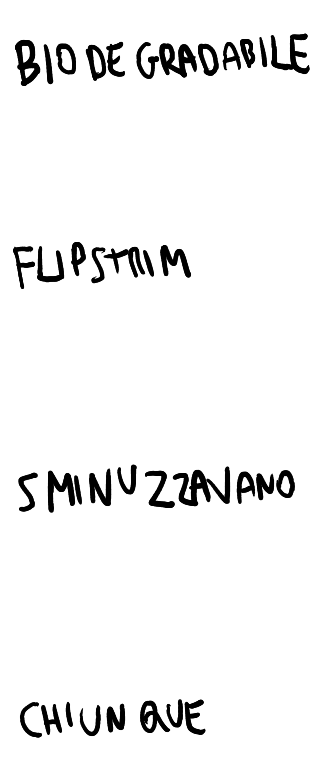 BIODEGRADABILE
FLIPSTRIM
SMINUZZAVANO
CHIUNQUE